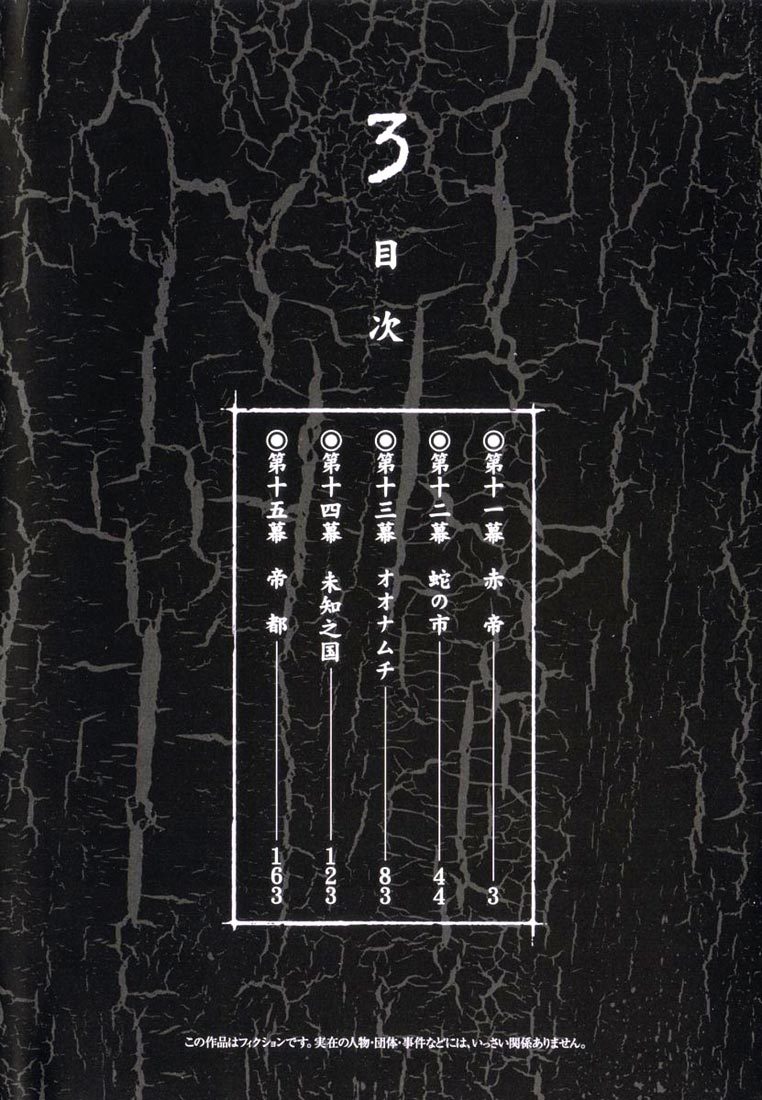 3
目次
第十一幕 赤帝 3
第十二幕 蛇の市 44
第十三幕 オオナムチ 83
第十四幕 未知之国 123
第十五幕 帝都 163
この作品はフィクションです。実在の人物・団体・事件などには、いっさい関係ありません。